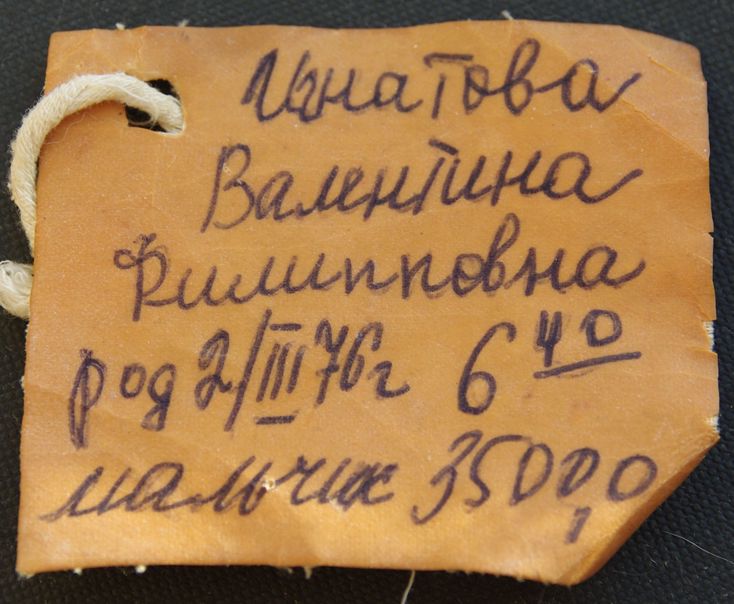 Игнатова
Валентина
Филипповна
род 2/III 76г 6 40
мальчик 3500,0